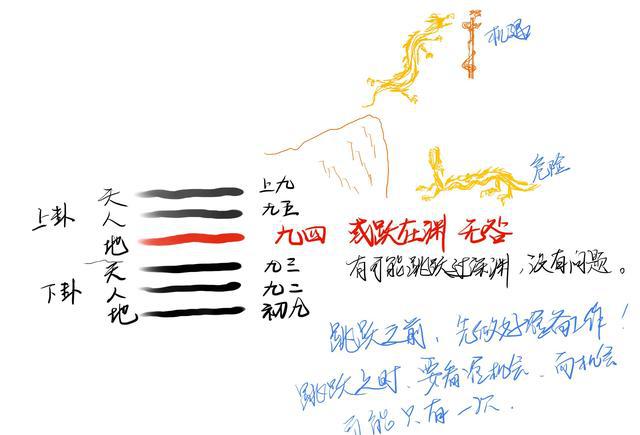 机遇
危险
上卦
天 上九
人 九五
地 九四 或跃在渊 无咎
有可能跳跃过深渊，没有问题。
下卦
天 九三
人 九二
地 初九
跳跃之前，先做好准备工作！
跳跃之时，要看准机会，而机会
可能只有一次．